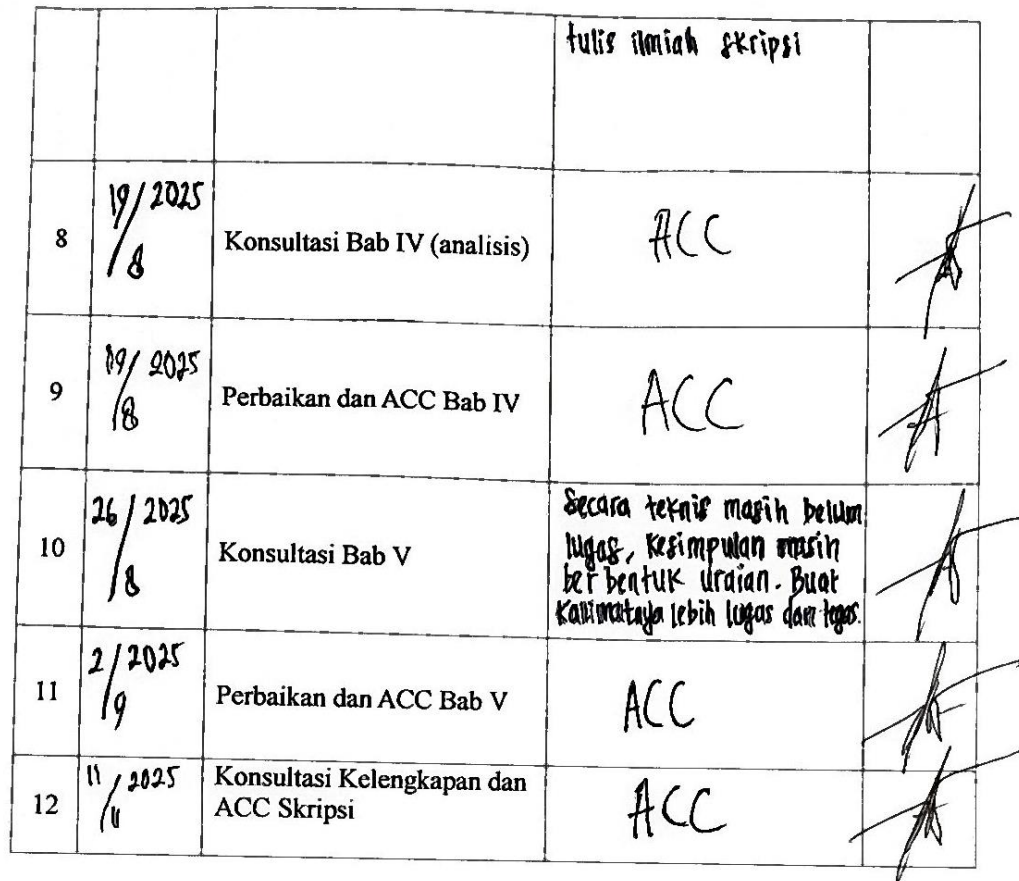 tulis ilmiah skripsi
8
19/8 2025
Konsultasi Bab IV (analisis)
ACC
9
19/8 2025
Perbaikan dan ACC Bab IV
ACC
10
26/8 2025
Konsultasi Bab V
Secara teknis masih belum
lugas, kesimpulan masih
berbentuk uraian. Buat
kalimatnya lebih lugas dan tegas.
11
2/9 2025
Perbaikan dan ACC Bab V
ACC
12
11/11 2025
Konsultasi Kelengkapan dan
ACC Skripsi
ACC